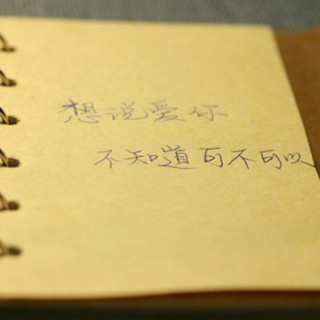 想说爱你
不知道可不可以